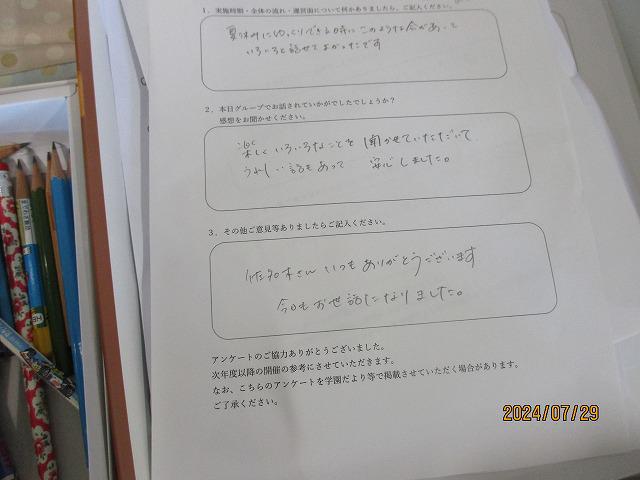 1．実施時期・全体の流れ・運営面について何かありましたら、ご記入ください。
夏休みにゆっくりできる時にこのような会があって
いろいろと話せてよかったです
2．本日グループでお話されていかがでしたでしょうか？
感想をお聞かせください。
楽しくいろいろなことを聞かせていただいて
うれしい話もあって 安心しました。
3．その他ご意見等ありましたらご記入ください。
佐知木さん いつもありがとうございます
今日もお世話になりました。
アンケートのご協力ありがとうございました。
次年度以降の開催の参考にさせていただきます。
なお、こちらのアンケートを学園だより等で掲載させていただく場合があります。
ご了承ください。
2024/07/29